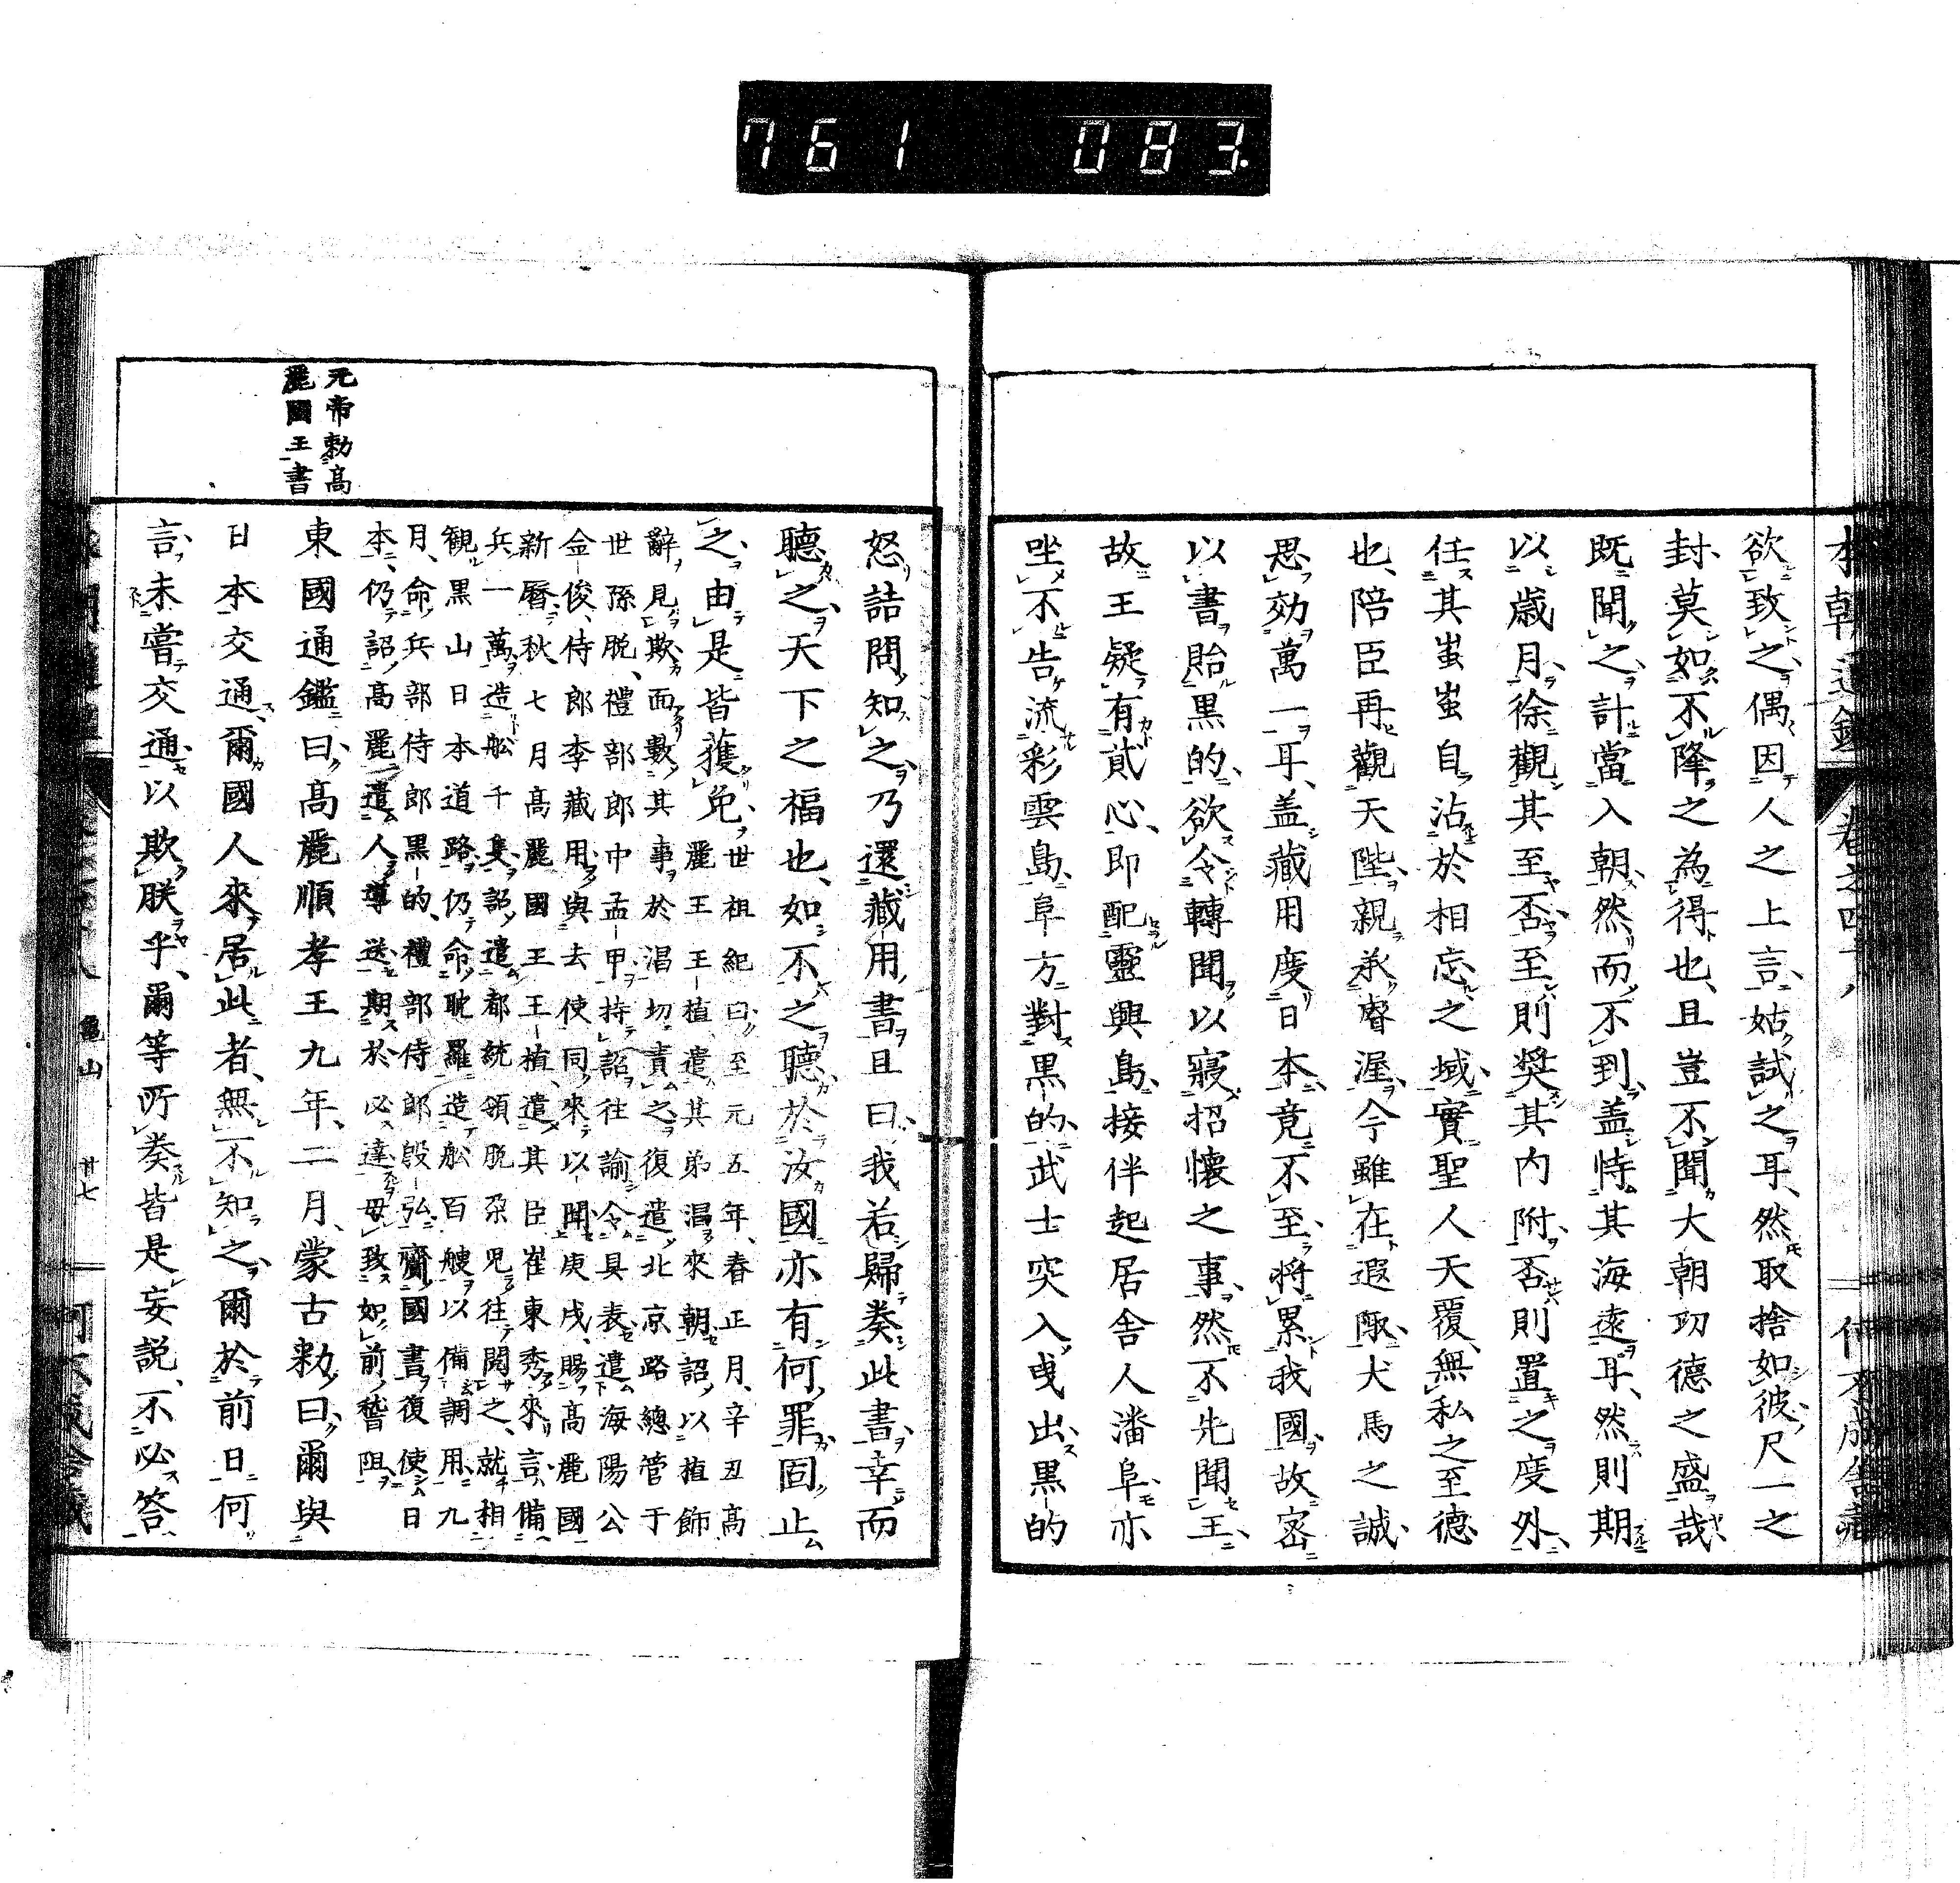 761 083
欲致之偶因人之上言姑試之耳、然取捨如彼尺一之
封、莫如不降之為得也、且豈不聞大朝功德之盛哉、
既聞之計當入朝、然而不到、盖恃其海遠耳、然則期
以歳月徐觀其至否、至則奨其内附否則置之度外、
任其蚩蚩自沾於相忘之域、實聖人天覆、無私之至德
也、陪臣再觀天陛、親承睿渥、今雖在遐陬、犬馬之誠、
思効萬一耳、盖藏用度日本竟不至、将累我國、故宻
以書貽黒的、欲令轉聞、以寢招懐之事、然不先聞王、
故王疑有貳心、即配靈興島、接伴起居舎人潘阜、亦
坐不告流彩雲島、阜方對黒的、武士突入、曵出、黒的
怒詰問、知之乃還藏用書、且曰、我若歸奏此書、幸而
聽之、天下之福也、如不之聽、於汝國亦有何罪、固止
之、由是皆獲免、世祖紀曰、至元五年、春正月、辛丑高
麗王王植遣其弟淐來朝、詔以植飾
辭見欺、面數其事於淐切責之、復遣北京路總管于
世孫脱、禮部郎中孟甲、持詔往諭、令具表遣海陽公
金俊、侍郎李藏用、與去使同來以聞、庚戌、賜高麗國
新暦、秋七月高麗國王王植遣其臣崔東秀來言、備
兵一萬造舩千隻、詔遣都統領脱朶児往閲之、就相
観黒山日本道路、仍命耽羅造舩百艘以備調用、九
月、命兵部侍郎黒的、禮部侍郎殷弘、齎國書復使日
本、仍詔高麗遣人導送、期於必達、毋致如前稽阻
東國通鑑曰、高麗順孝王九年、二月、蒙古勑曰、爾與
日本交通、爾國人來居此者、無不知之、爾於前日何
言未嘗交通、以欺朕乎、爾等所奏皆是妄説、不必答
元帝勅高
麗國王書
龜山
廿七